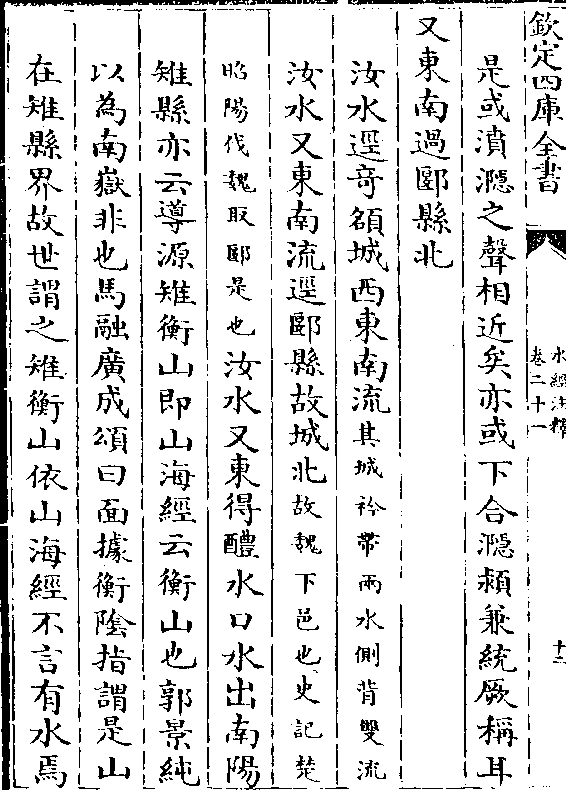 欽定四庫全書
水經注釋
卷二十一
十二
是或濆濦之聲相近矣亦或下合濦潁兼統厥稱耳
又東南過郾縣北
汝水逕奇頟城西東南流其城衿帶兩水側背雙流
汝水又東南流逕郾縣故城北故魏下邑也史記楚
昭陽伐魏取郾是也汝水又東得醴水口水出南陽
雉縣亦云導源雉衡山即山海經云衡山也郭景純
以為南嶽非也馬融廣成頌曰面據衡陰指謂是山
在雉縣界故世謂之雉衡山依山海經不言有水焉